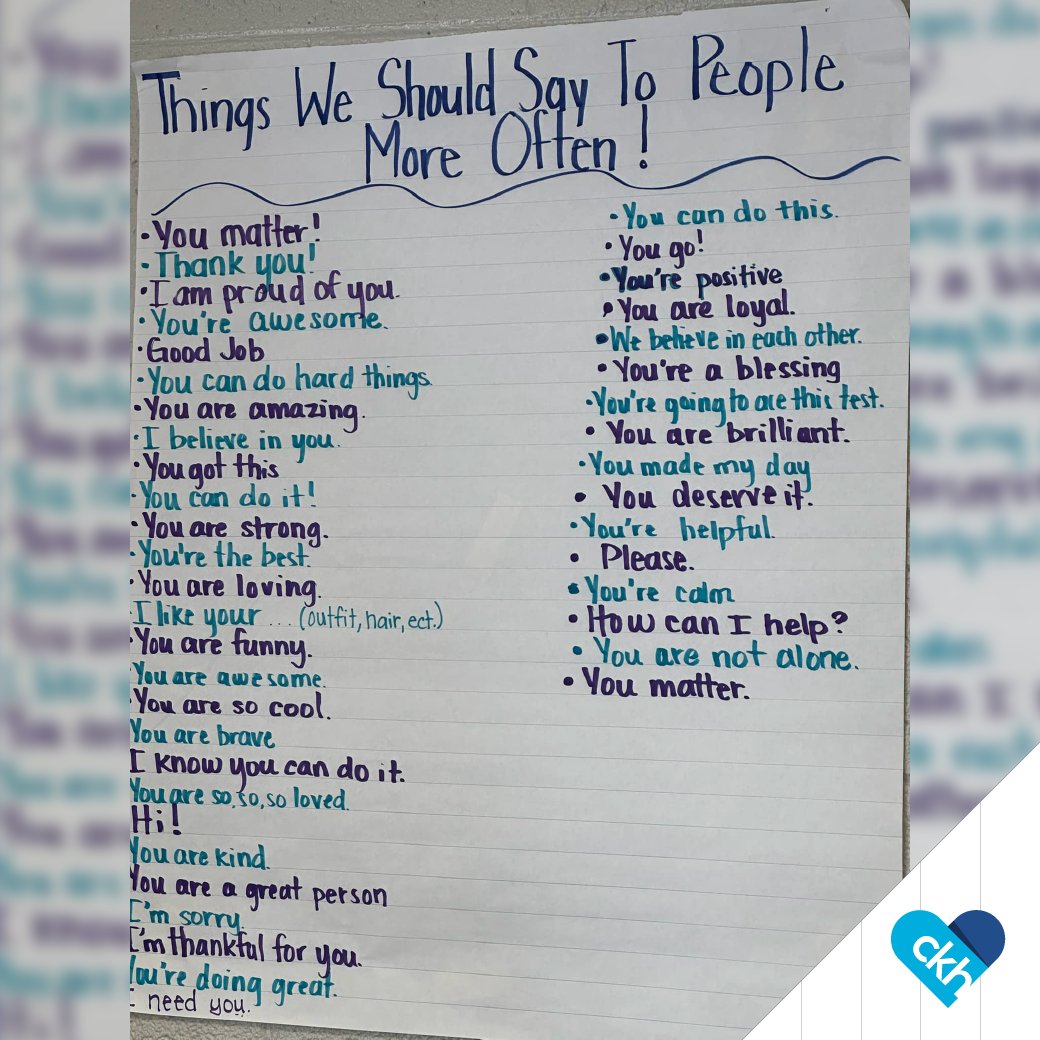 Things We Should Say To People
More Often!
•You matter!
•Thank you!
•I am proud of you.
•You're awesome.
•Good Job
•You can do hard things.
•You are amazing.
•I believe in you.
•You got this
•You can do it!
•You are strong.
•You're the best.
•You are loving.
I like your ... (outfit, hair, ect.)
•You are funny.
You are awesome.
•You are so cool.
You are brave
I know you can do it.
You are so, so, so loved.
Hi!
You are kind.
You are a great person
I'm sorry
I'm thankful for you.
You're doing great.
I need you.
•You can do this.
•You go!
•You're positive
•You are loyal.
•We believe in each other.
•You're a blessing
•You're going to ace this test.
•You are brilliant.
•You made my day
•You deserve it.
•You're helpful.
•Please.
•You're calm
•How can I help?
•You are not alone.
•You matter.
ckh